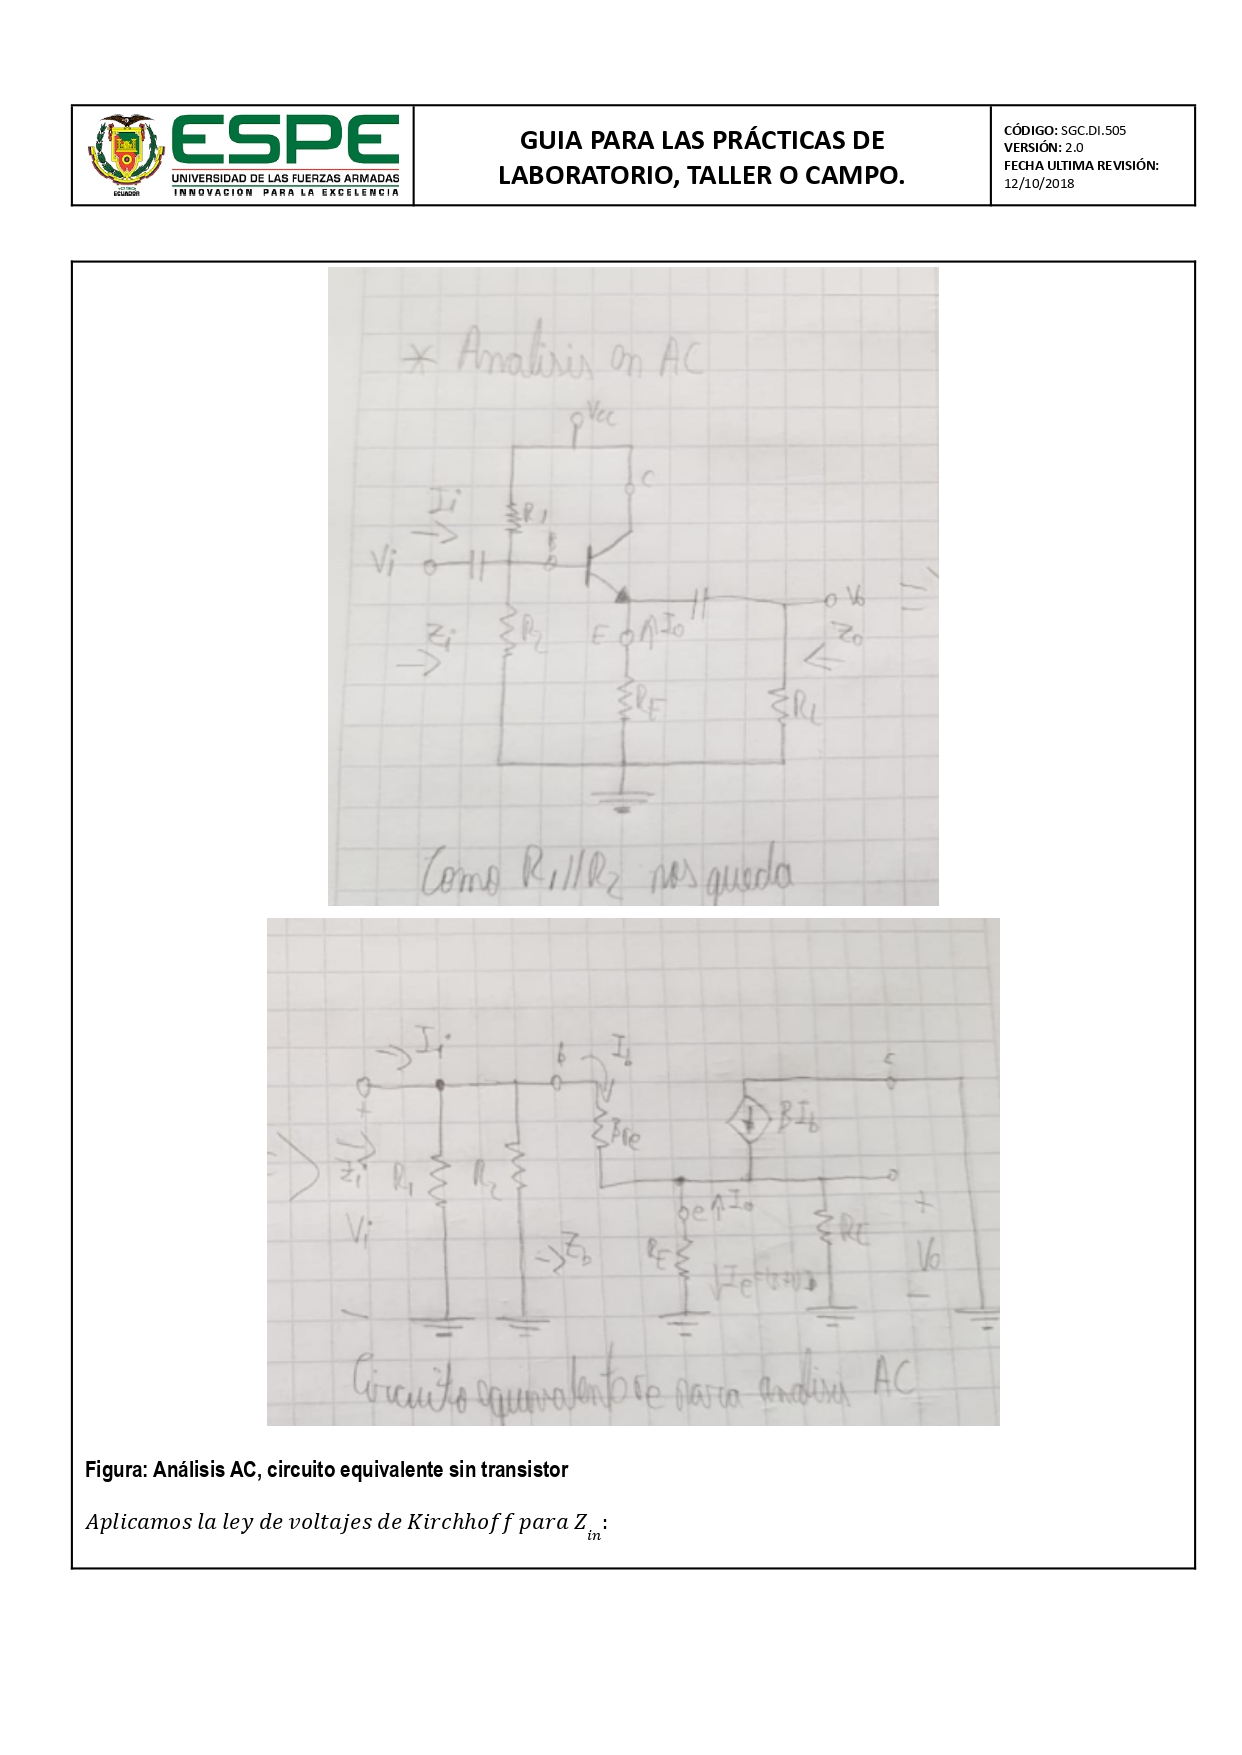 ESPE
UNIVERSIDAD DE LAS FUERZAS ARMADAS
INNOVACION PARA LA EXCELENCIA
ECUADOR
GUIA PARA LAS PRÁCTICAS DE
LABORATORIO, TALLER O CAMPO.
CÓDIGO: SGC.DI.505
VERSIÓN: 2.0
FECHA ULTIMA REVISIÓN:
12/10/2018
* Analisis en AC
Vcc
C
Ii
R1
B
Vi
Vo
Zi
R2
E
Io
Zo
RE
RL
Como R1//R2 nos queda
Ii
b
Ib
c
+
Bre
BIb
Zi
R1
R2
e
Io
+
Vi
Zb
RE
RL
Vo
Ie
-
-
Circuito equivalente re para analisis AC
Figura: Análisis AC, circuito equivalente sin transistor
Aplicamos la ley de voltajes de Kirchhoff para Zin: